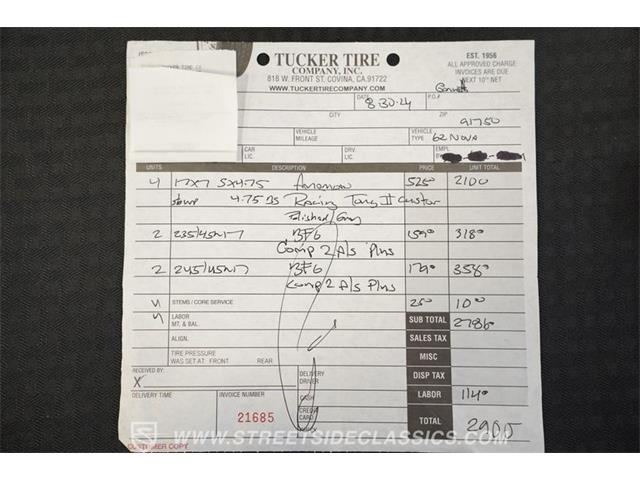 TUCKER TIRE
COMPANY, INC.
818 W. FRONT ST. COVINA, CA. 91722
WWW.TUCKERTIRECOMPANY.COM
EST. 1956
ALL APPROVED CHARGE
INVOICES ARE DUE
NEXT 10th NET
DATE 8-30-24 P.O.#
CITY ZIP 91750
VEHICLE MILEAGE VEHICLE TYPE 62 NOVA
CAR LIC. DRV. LIC. EMPL.
UNITS DESCRIPTION PRICE UNIT TOTAL
4 17x7 5x4.75 American 525 2100
4.75 BS Racing Torq II Custom
Polished/Gray
2 235/45R17 BFG 159 318
Comp 2 A/S Plus
2 245/45R17 BFG 179 358
Comp 2 A/S Plus
4 STEMS / CORE SERVICE 250 10
4 LABOR MT. & BAL. SUB TOTAL 2786
ALIGN. SALES TAX
TIRE PRESSURE WAS SET AT FRONT REAR MISC
RECEIVED BY: X DELIVERY DRIVER DISP TAX
DELIVERY TIME INVOICE NUMBER CASH LABOR 114
21685 CREDIT CARD TOTAL 2900
CUSTOMER COPY
WWW.STREETSIDECLASSICS.COM